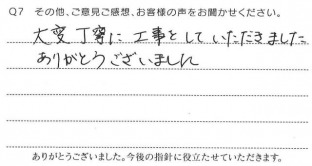 Q7 その他、ご意見ご感想、お客様の声をお聞かせください。
大変丁寧に工事をしていただきました
ありがとうございました
ありがとうございました。今後の指針に役立たせていただきます。